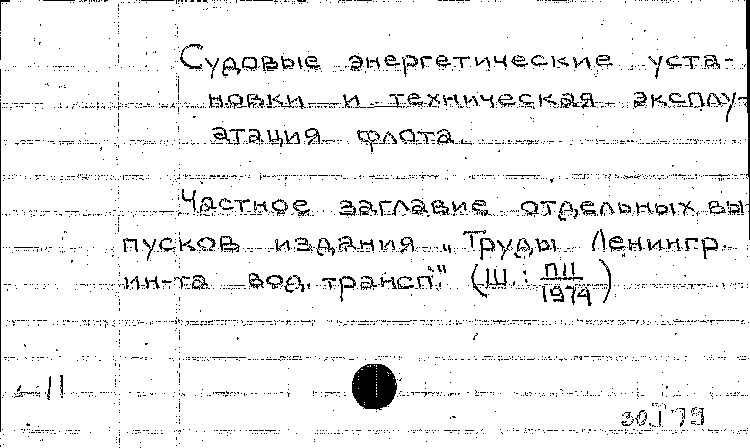 Судовые энергетические уста-
новки и техническая эксплу-
атация флота.
Частное заглавие отдельных вы-
пусков издания „Труды Ленингр.
ин-та вод. трансп." (Ш.: П11
1974)
30.I 79